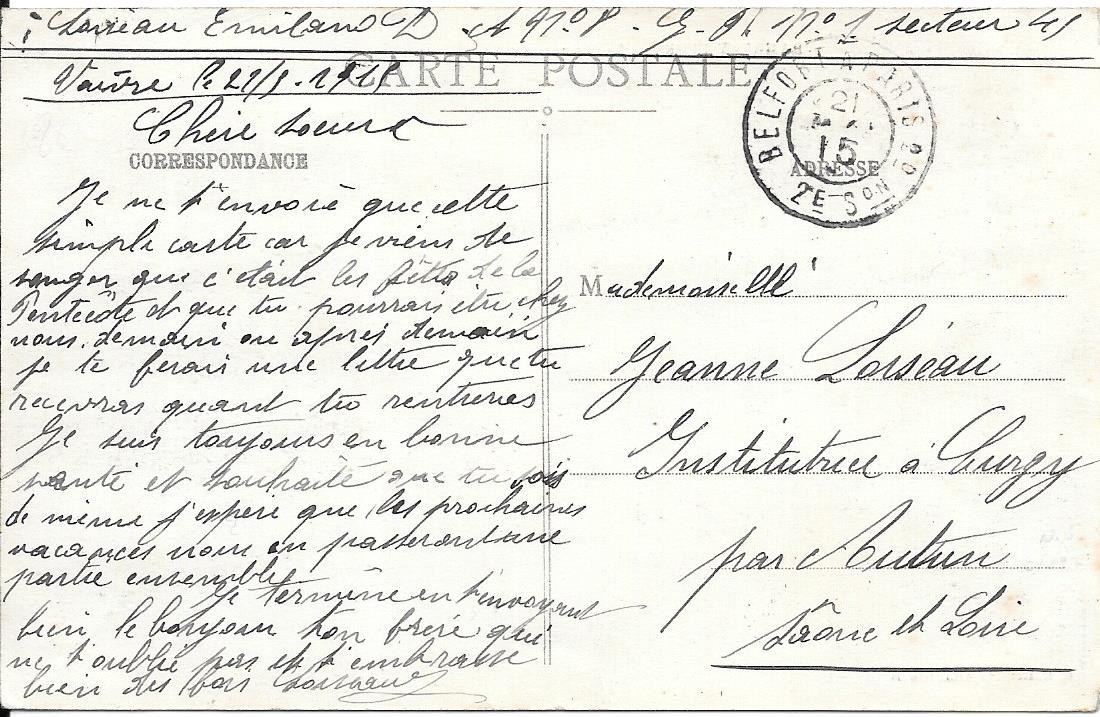 Loiseau Emiland D A N°8 - G. B. N°1 secteur 41
CARTE POSTALE
Vaivre le 21/5 - 1915
Chère soeur
CORRESPONDANCE
Je ne t'envoie que cette
simple carte car je viens de
songer que c'était les fêtes de la
Pentecôte et que tu pourrais être chez
nous demain ou après demain
je te ferais une lettre que tu
recevras quant tu rentreras
Je suis toujours en bonne
santé et souhaite que tu sois
de même j'espère que les prochaines
vacances nous en passeront une
partie ensemble
Je termine en t'envoyant
bien le bonjour ton frère qui
ne t'oublie pas et t'embrasse
bien des fois Loiseau
BELFORT A PARIS 2°
21
15
2E SON
ADRESSE
Mademoiselle
Jeanne Loiseau
Institutrice à Curgy
par Autun
Saône et Loire